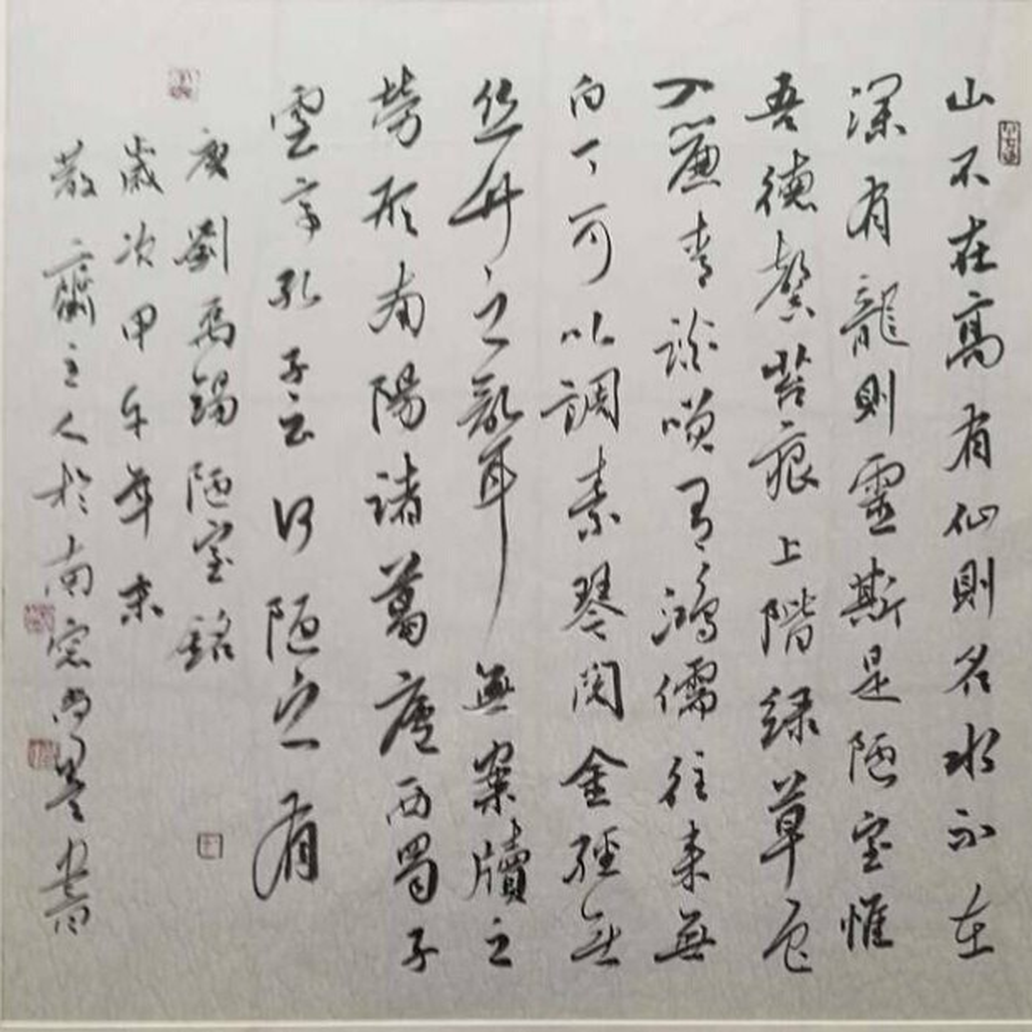 山不在高有仙則名水不在
深有龍則靈斯是陋室惟
吾德馨苔痕上階綠草色
入簾青談笑有鴻儒往來無
白丁可以調素琴閱金經無
丝竹之亂耳無案牘之
勞形南陽諸葛廬西蜀子
雲亭孔子云何陋之有
唐劉禹錫陋室銘
歲次甲午年末
齋主人於南窓